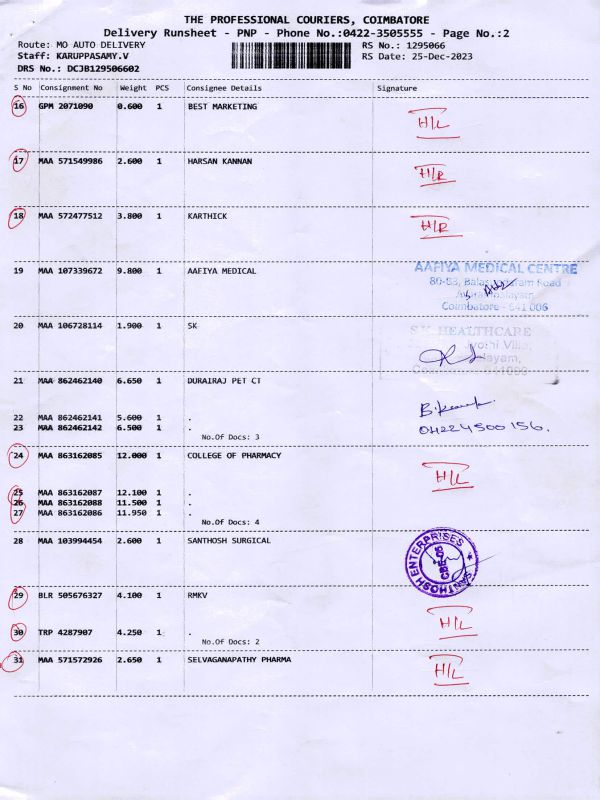 THE PROFESSIONAL COURIERS, COIMBATORE
Delivery Runsheet - PNP - Phone No.:0422-3505555 - Page No.:2
Route: MO AUTO DELIVERY RS No.: 1295066
Staff: KARUPPASAMY.V RS Date: 25-Dec-2023
DRS No.: DCJB129506602
S No Consignment No Weight PCS Consignee Details Signature
16 GPM 2071090 0.600 1 BEST MARKETING H/L
17 MAA 571549986 2.600 1 HARSAN KANNAN H/R
18 MAA 572477512 3.800 1 KARTHICK H/R
19 MAA 107339672 9.800 1 AAFIYA MEDICAL AAFIYA MEDICAL CENTRE
Road
Coimbatore - 641 006
20 MAA 106728114 1.900 1 SK S.K. HEALTHCARE
Jyothi
21 MAA 862462140 6.650 1 DURAIRAJ PET CT
22 MAA 862462141 5.600 1 .
23 MAA 862462142 6.500 1 . 04224500156.
No.Of Docs: 3
24 MAA 863162085 12.000 1 COLLEGE OF PHARMACY H/L
25 MAA 863162087 12.100 1 .
26 MAA 863162088 11.500 1 .
27 MAA 863162086 11.950 1 .
No.Of Docs: 4
28 MAA 103994454 2.600 1 SANTHOSH SURGICAL SANTHOSH ENTERPRISES
29 BLR 505676327 4.100 1 RMKV H/L
30 TRP 4287907 4.250 1 .
No.Of Docs: 2
31 MAA 571572926 2.650 1 SELVAGANAPATHY PHARMA H/L